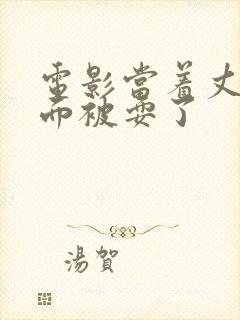 電影當着丈
面被耍了
湯賀